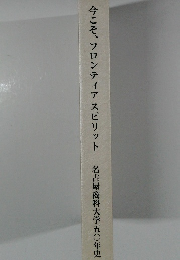 今こそ、フロンティアスピリット 名古屋商科大学五〇年史